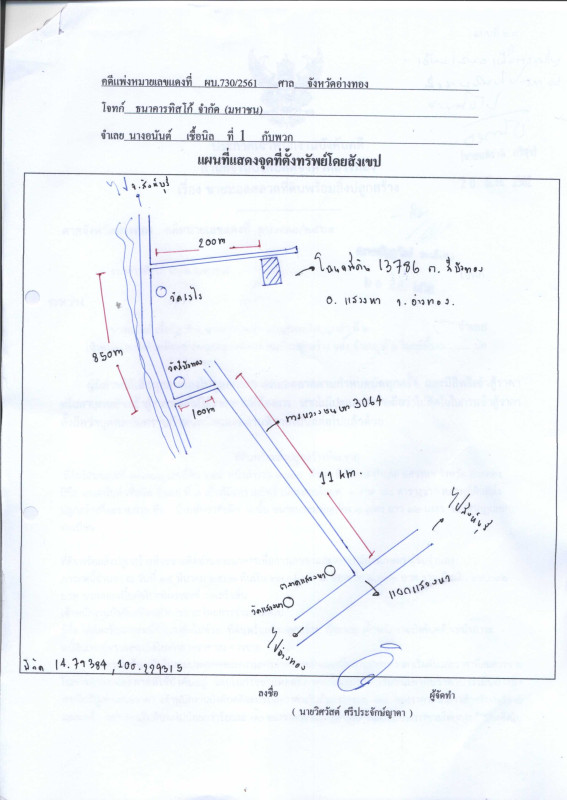 คดีแพ่งหมายเลขแดงที่ ผบ.730/2561 ศาล จังหวัดอ่างทอง
โจทก์ ธนาคารทิสโก้ จำกัด (มหาชน)
จำเลย นางอนันต์ เชื้อนิล ที่ 1 กับพวก
แผนที่แสดงจุดที่ตั้งทรัพย์โดยสังเขป
ไป จ.สิงห์บุรี
200m
โฉนดที่ดิน 13786 ต. สีบัวทอง
อ. แสวงหา จ. อ่างทอง.
850m
วัดสีบัวทอง
100m
ทางหลวงชนบท 3064
11 km.
ไปสิงห์บุรี
ตลาดแสวงหา
แยกแสวงหา
วัดแสวงหา
ไปอ่างทอง
พิกัด 14.79384, 100.299315
ลงชื่อ ผู้จัดทำ
( นายวิศวัสต์ ศรีประจักษ์ญาดา )